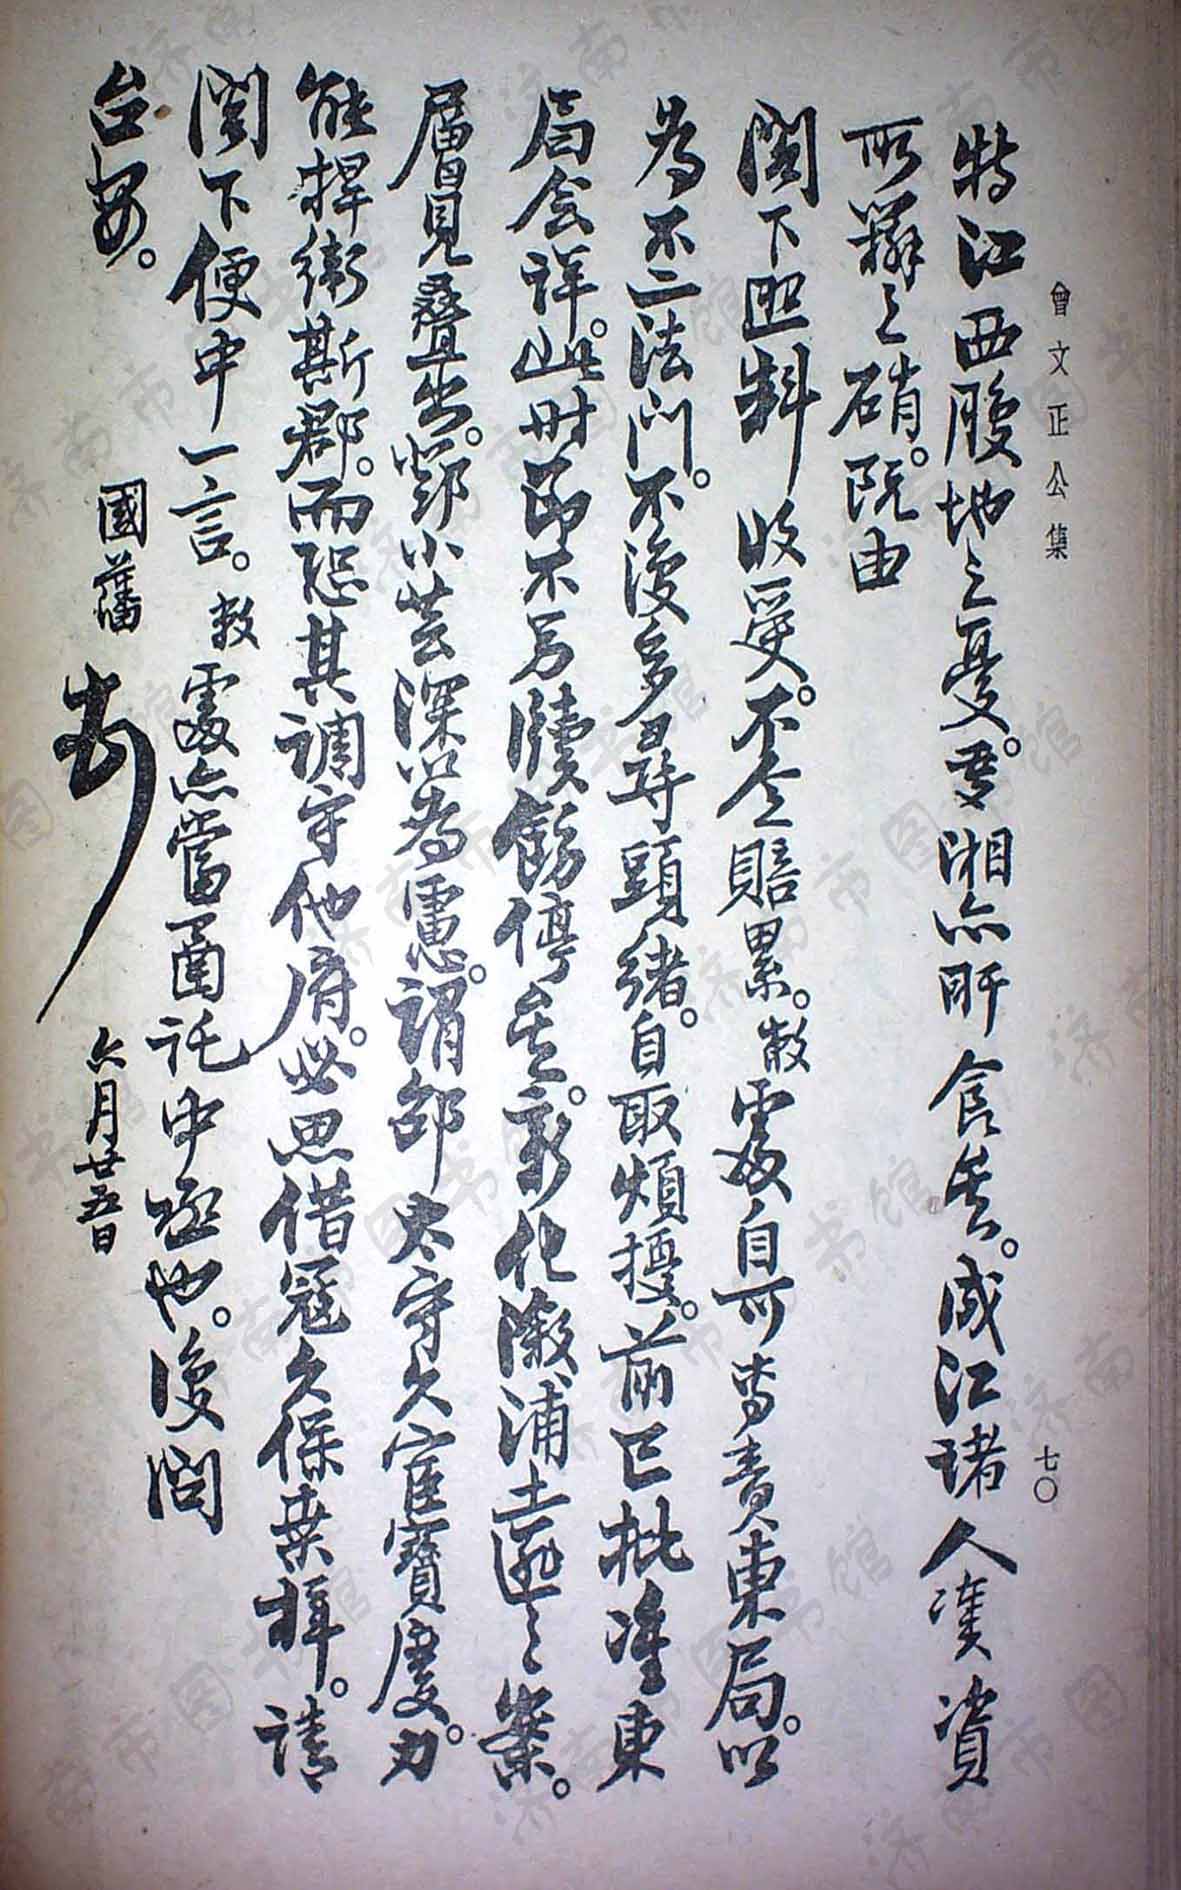 曾文正公集
七〇
特江西腹地之憂。吾湘亦旰食矣。咸江諸人凑資
所辦之硝。既由
閣下照料收受。不令賠累。敝處自可專責東局。以
為不二法門。不復多尋頭緒。自取煩擾。前已批准東
局會詳。此時即不另牘飭停矣。新化漵浦土匪之案。
層見疊出。鄧小芸深以為慮。謂邵太守久宦寶慶。力
能捍衛斯郡。而恐其調守他府。必思借寇久保桑梓。請
閣下便中一言。敝處亦當函託中丞也。復問
台安。
國藩
六月廿五日
济南市图书馆